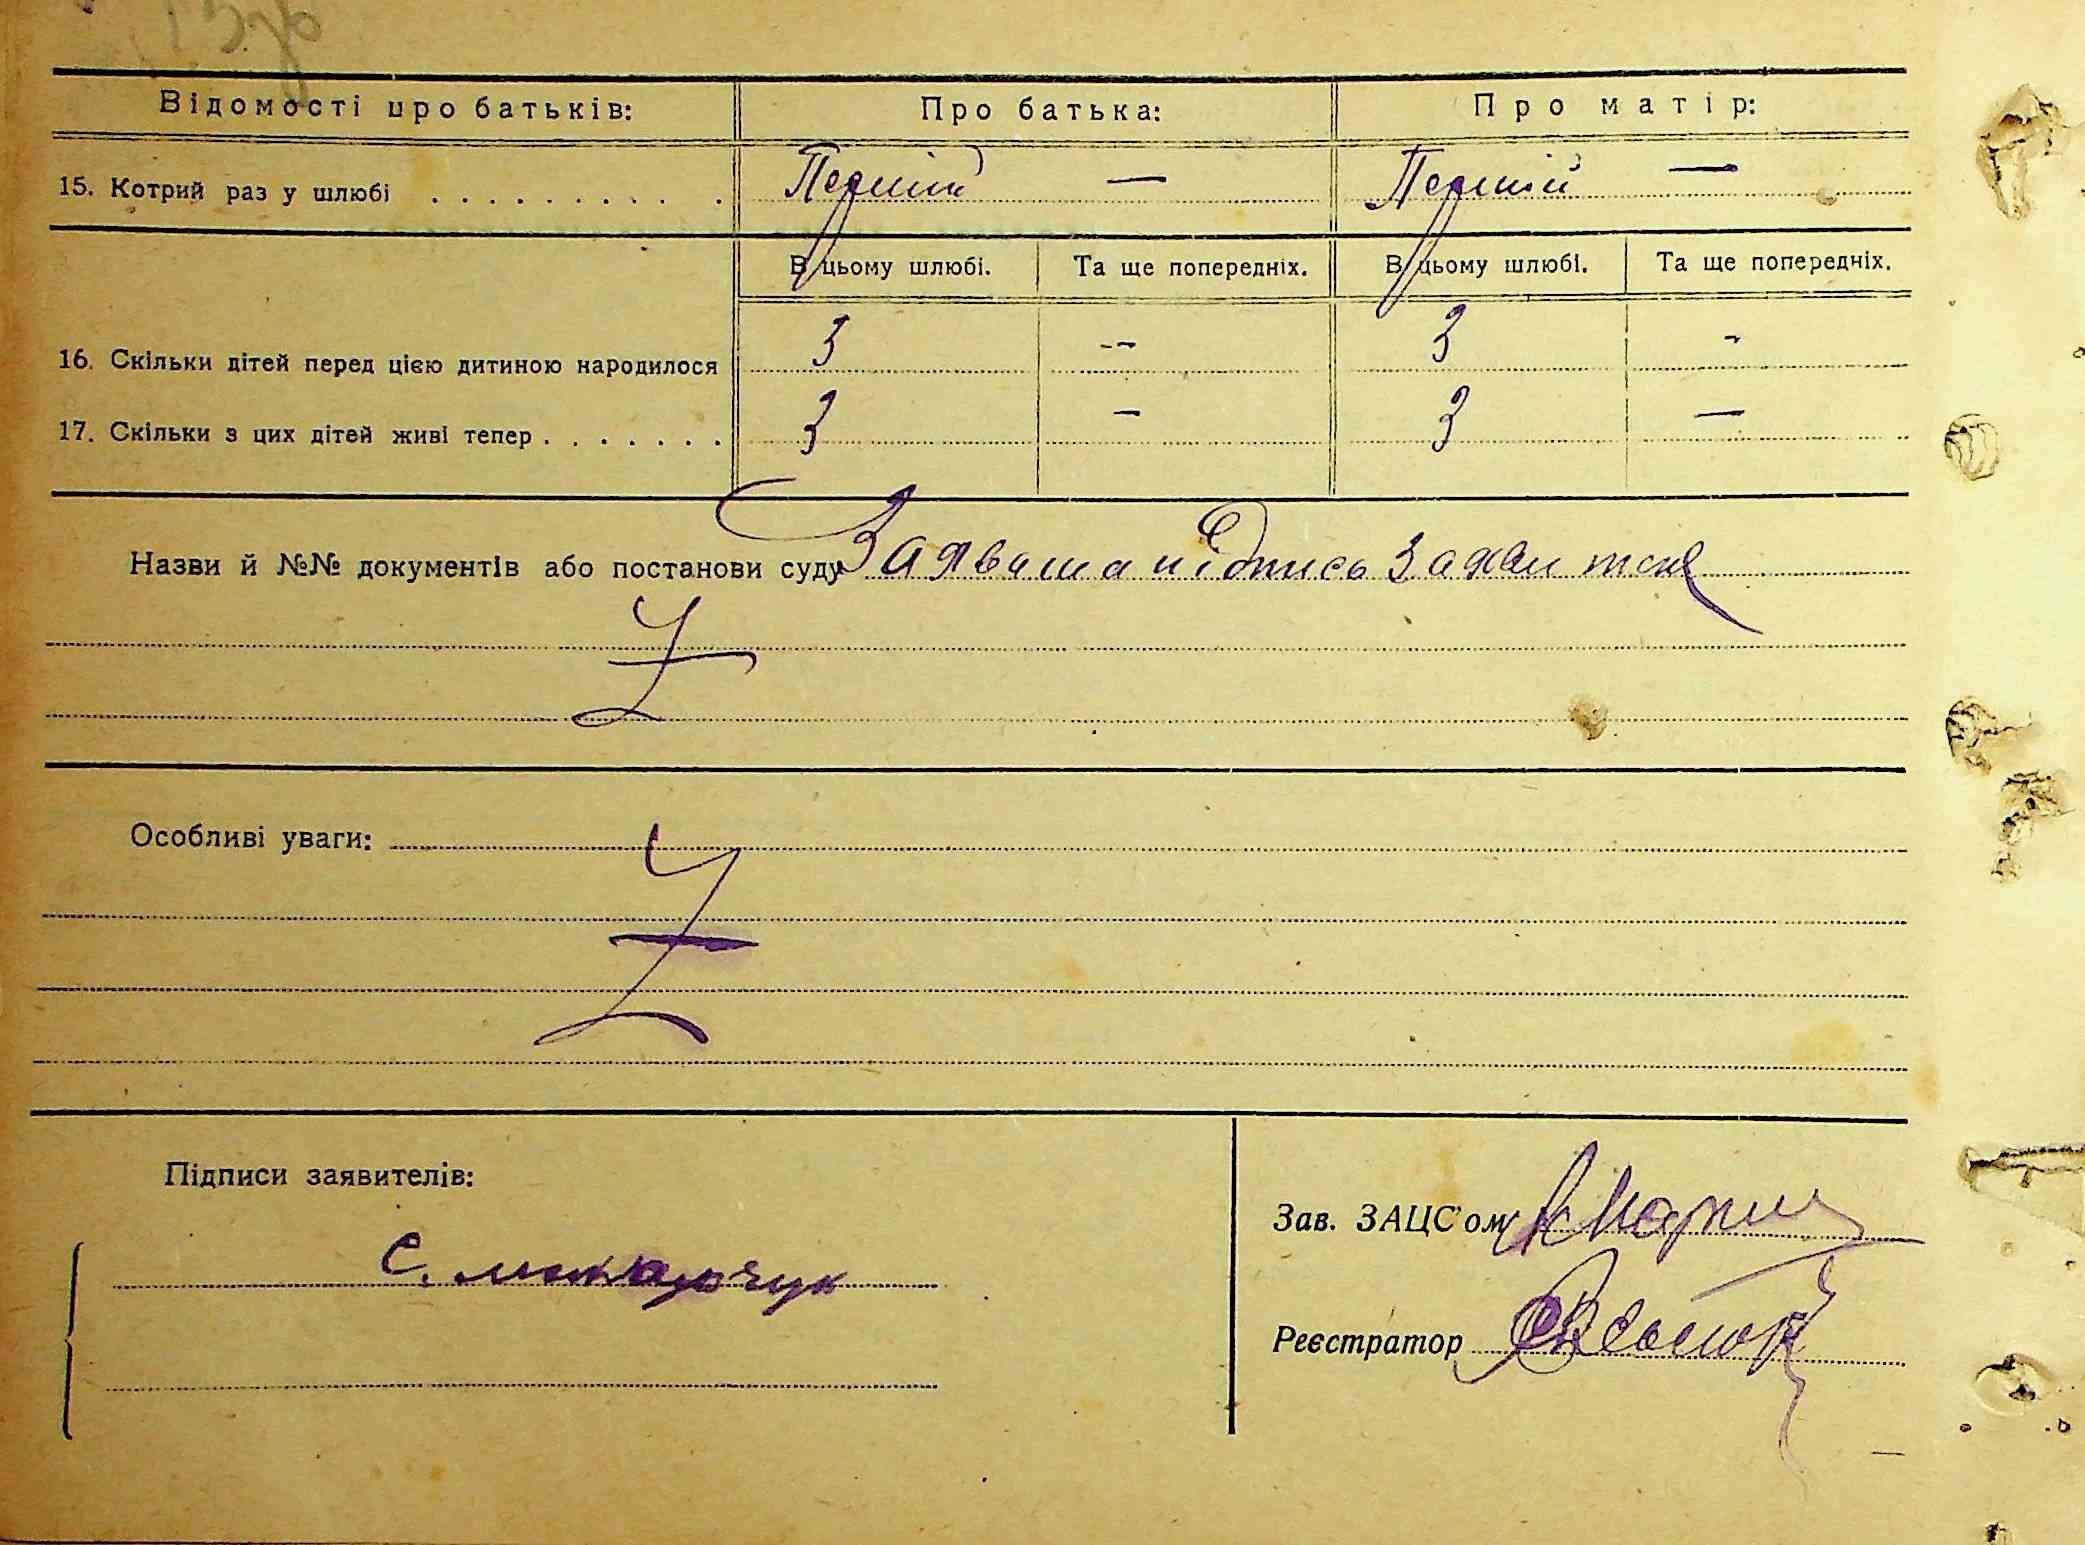 Відомості про батьків: Про батька: Про матір:
15. Котрий раз у шлюбі . . . . . . . . . . Перший — Перший —
В цьому шлюбі. Та ще попередніх. В цьому шлюбі. Та ще попередніх.
16. Скільки дітей перед цією дитиною народилося 3 -- 3 -
17. Скільки з цих дітей живі тепер . . . . . . . 3 — 3 —
Назви й №№ документів або постанови суду Заява та підпис заявителя
Z
Особливі уваги:
Z
Підписи заявителів:
Зав. ЗАЦС'ом
С.
Реєстратор